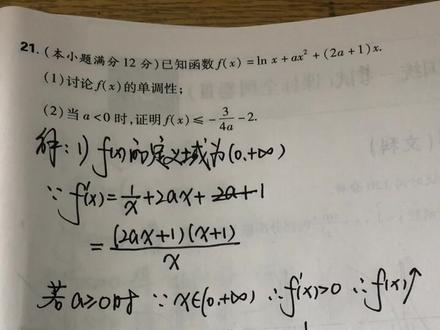 21.(本小题满分12分)已知函数f(x)=ln x+ax²+(2a+1)x.
(1)讨论f(x)的单调性;
(2)当a<0时,证明f(x)≤-3/4a-2.
解:1) f(x)的定义域为(0,+∞)
∵f'(x)=1/x+2ax+2a+1
=(2ax+1)(x+1)/x
若a≥0时 ∵x∈(0,+∞) ∴f'(x)>0 ∴f(x)↑